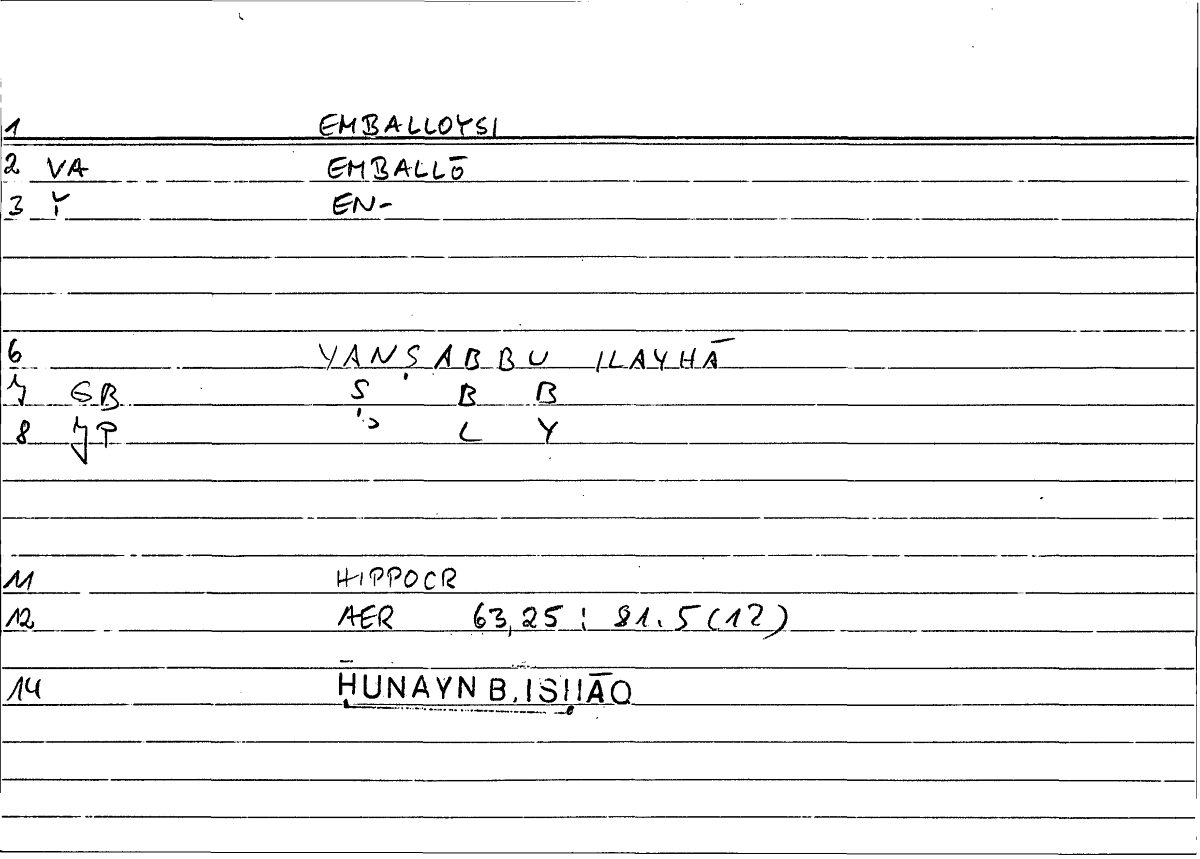 1 EMBALLOYSI
2 VA EMBALLŌ
3 Y EN-
6 YANṢABBU ILAYHĀ
7 GB Ṣ B B
8 JP L Y
11 HIPPOCR
12 AER 63,25 : 81.5(12)
14 ḤUNAYN B. ISḤĀQ